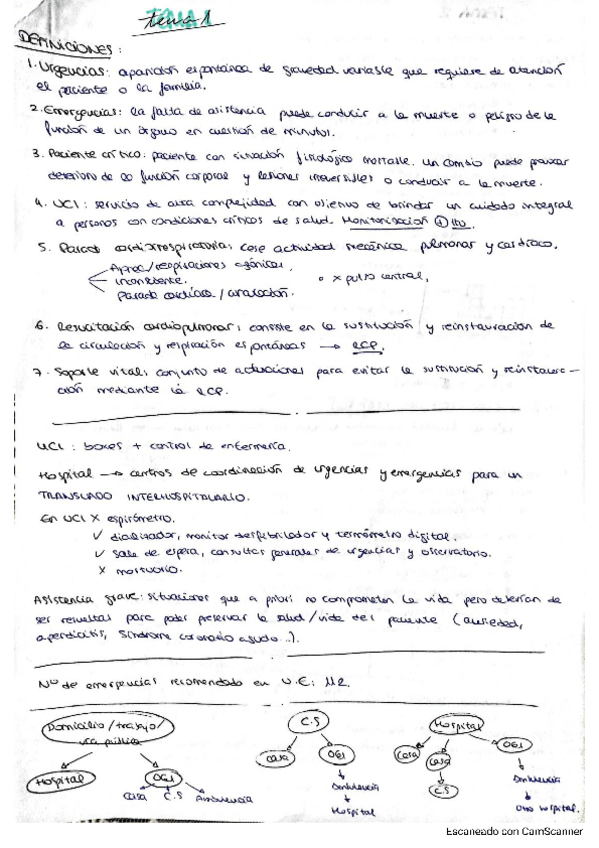 tema 1
DEFINICIONES:
1. Urgencias: aparición espontánea de gravedad variable que requiere de atención
el paciente o la familia.
2. Emergencias: la falta de asistencia puede conducir a la muerte o peligro de la
función de un órgano en cuestión de minutos.
3. Paciente crítico: paciente con situación fisiológica inestable. Un cambio puede provocar
deterioro de la función corporal y lesiones irreversibles o conducir a la muerte.
4. UCI: servicio de alta complejidad con objetivo de brindar un cuidado integral
a personas con condiciones críticas de salud. Monitorización + tto.
5. Parada cardiorrespiratoria: cese actividad mecánica pulmonar y cardiaca.
Apnea/respiraciones agónicas.
Inconsciente.
Parada cardiaca / circulación.
x pulso central.
6. Resucitación cardiopulmonar: consiste en la sustitución y reinstauración de
la circulación y respiración espontáneas → RCP.
7. Soporte vital: conjunto de actuaciones para evitar la sustitución y reinstaura-
ción mediante la RCP.
UCI: boxes + control de enfermería.
Hospital → centros de coordinación de urgencias y emergencias para un
TRANSLADO INTERHOSPITALARIO.
En UCI X espirómetro.
✓ dializador, monitor desfibrilador y termómetro digital.
✓ Sala de espera, consultas generales de urgencias y observatorio.
X mortuorio.
Asistencia grave: situaciones que a priori no comprometen la vida pero deberían de
ser resueltas para poder preservar la salud/vida del paciente (ansiedad,
apendicitis, Síndrome coronario agudo..).
Nº de emergencias recomendado en U.E: 112.
Domicilio/trabajo/
vía pública
Hospital
061
Casa C.S Ambulancia
C.S
casa
061
Ambulancia
Hospital
Hospital
Casa
Casa
C.S
061
Ambulancia
Otro hospital.
Escaneado con CamScanner